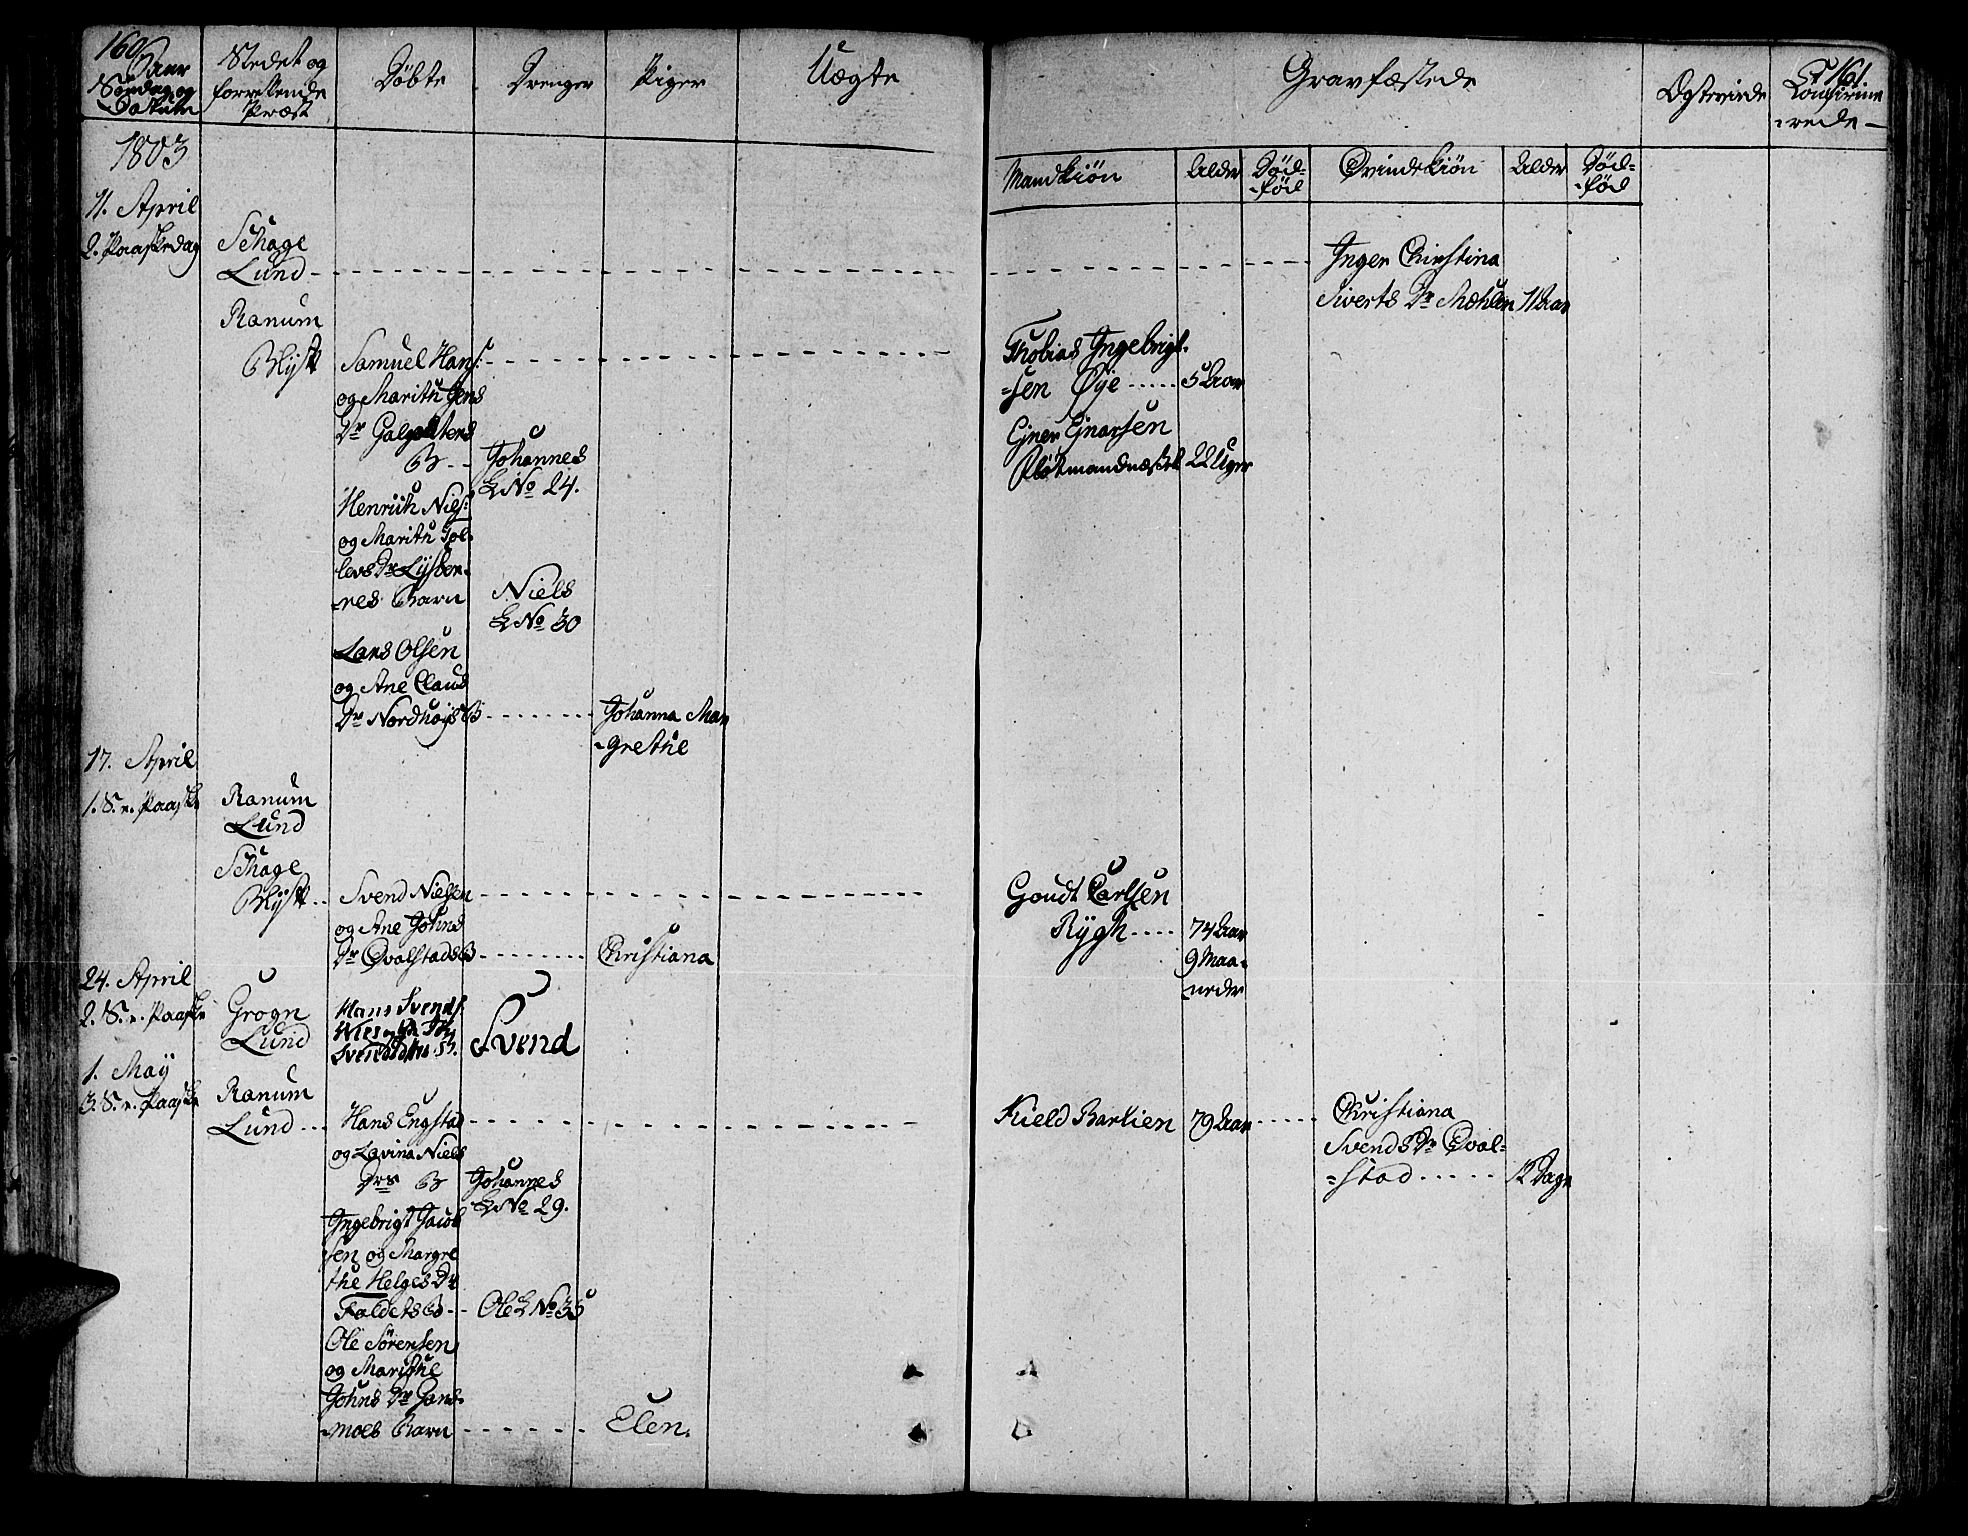 160
Aar
Søndag og
Datum
Stedet og
forrettende
Præst
Døbte
Drenger
Piger
Uægte
Gravfæstede
161.
Confirme
-rede
Mandkiøn
Alder
Død-
-fød
Qvindekiøn
Alder
Død-
-fød
1803
11. April
2. Paaskedag
Schage
Lund
Inger Christina
Siverts Dr Mæhlen 11 Aar
Ranum
Samuel Hans:
og Marith Jens
Dr
B
Johannes
No 24.
Thobias Ingebrigt-
-sen Øye 5 Aar
Ejner Ejnarsen
22 Uger
Henrich Niels:
og Marith Tol-
levs Dr Lysber-
-nes Barn
Niels
No 30
Lars Olsen
og Ane Claus
Dr Nordhøys B
Johanna Mar
-grethe
17. April
1. S. e. Paaske
Ranum
Lund
Schage
Svend Nielsen
og Ane Johns
Dr Qvalstads B
Christiana
Goudt Carlsen
Rygh 74 Aar
9 Maa-
neder
24. April
2. S. e. Paaske
Grogn
Lund
Hans Svends:
Svend
1. May
3. S. e. Paaske
Ranum
Lund
Hans Engstad
og Lavina Niels
Drs B
Johannes
No 29.
Kield Barlien 79 Aar
Christiana
Svends Dr Qval-
-stad 12 Dage
Ingebrigt Jacob
sen og Margre
the Helges Dr
Faldets B
Ole No 35
Ole Sørensen
og Marithe
Johns Dr Gans-
-moes Barn
Elen.